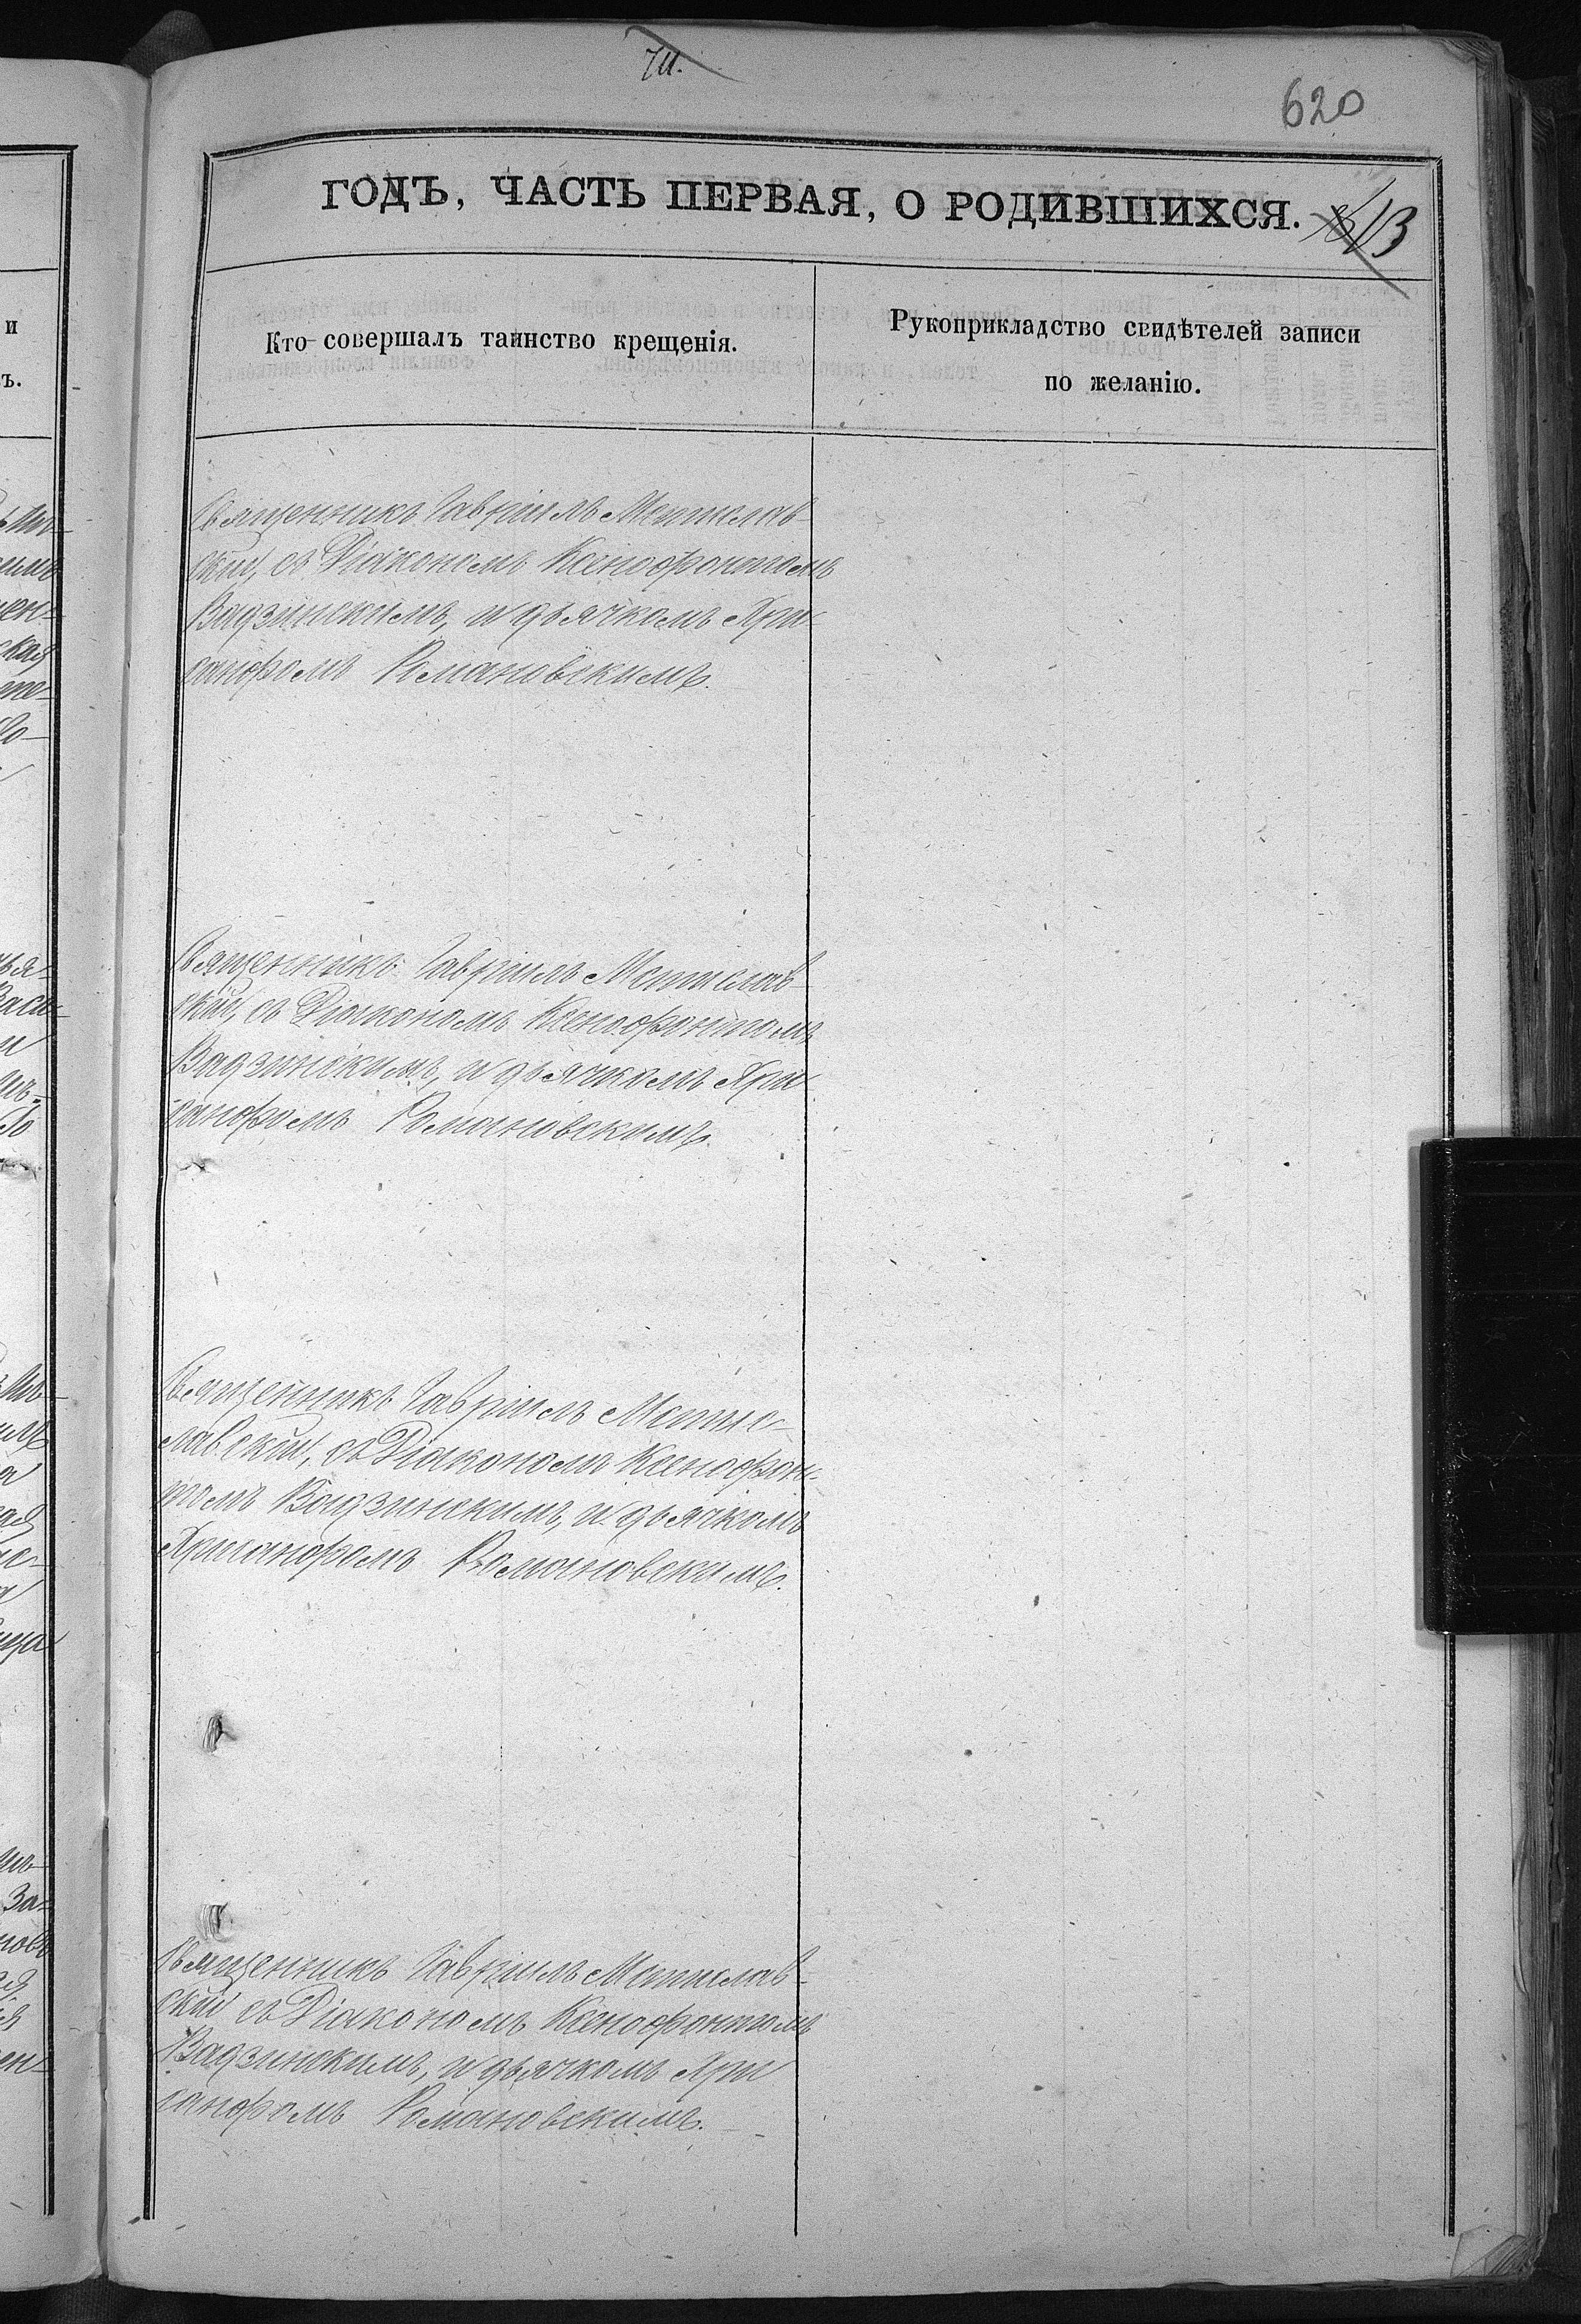 711.
620
ГОДЪ, ЧАСТЬ ПЕРВАЯ, О РОДИВШИХСЯ.
Кто совершалъ таинство крещенія.
Рукоприкладство свидѣтелей записи
по желанію.
Священникъ Гавріилъ Мстислав-
скій, съ Діакономъ Ксенофонтомъ
Вадзинскимъ, и дьячкомъ Хри-
санфомъ Романовскимъ.
Священникъ Гавріилъ Мстислав-
скій, съ Діакономъ Ксенофонтомъ
Вадзинскимъ, и дьячкомъ Хри-
санфомъ Романовскимъ.
Священникъ Гавріилъ Мстис-
лавскій, съ Діакономъ Ксенофон-
томъ Вадзинскимъ, и дьячкомъ
Хрисанфомъ Романовскимъ.
Священникъ Гавріилъ Мстислав-
скій съ Діакономъ Ксенофонтомъ
Вадзинскимъ, и дьячкомъ Хри
санфомъ Романовскимъ.